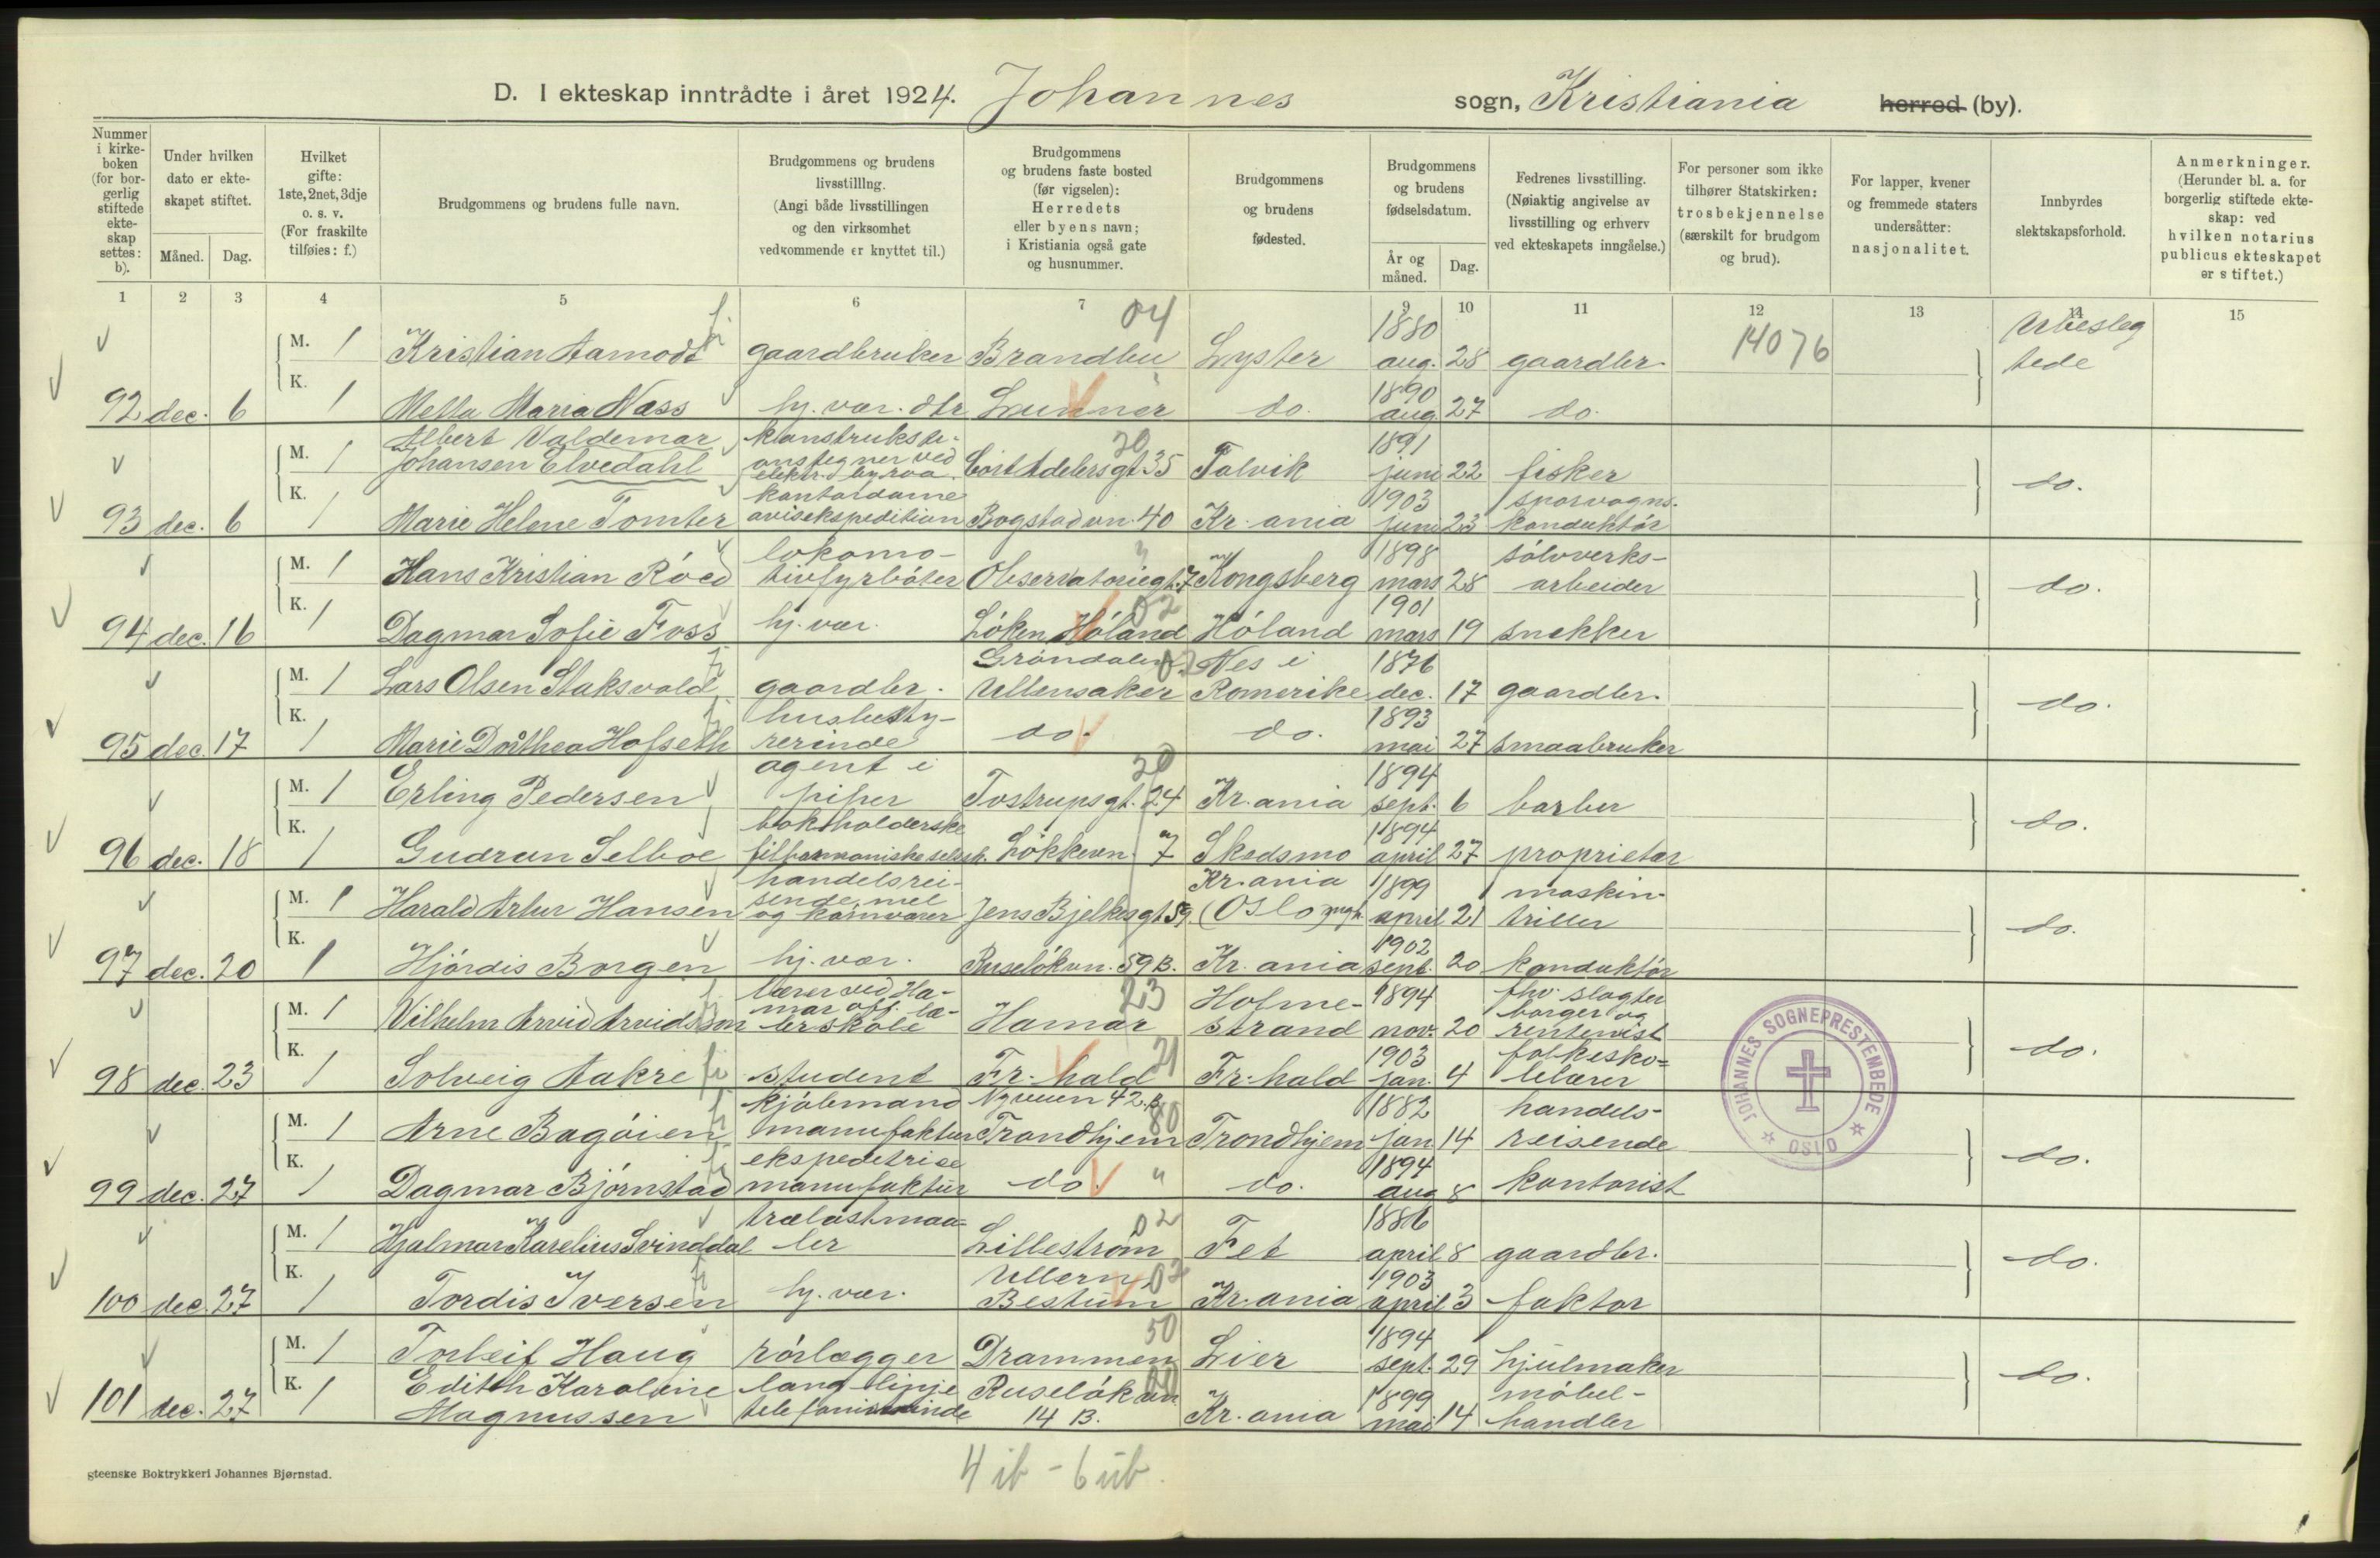 D. I ekteskap inntrådte i året 1924. Johannes sogn, Kristiania herred (by).
Nummer i kirke-boken (for bor-gerlig stiftede ekte-skap settes: b).
Under hvilken dato er ekte-skapet stiftet.
Måned. Dag.
Hvilket gifte: 1ste, 2net, 3dje o. s. v. (For fraskilte tilføies: f.)
Brudgommens og brudens fulle navn.
Brudgommens og brudens livsstilllng. (Angi både livsstillingen og den virksomhet vedkommende er knyttet til.)
Brudgommens og brudens faste bosted (før vigselen): Herredets eller byens navn; i Kristiania også gate og husnummer.
Brudgommens og brudens fødested.
Brudgommens og brudens fødselsdatum.
År og måned. Dag.
Fedrenes livsstilling. (Nøiaktig angivelse av livsstilling og erhverv ved ekteskapets inngåelse.)
For personer som ikke tilhører Statskirken: trosbekjennelse (særskilt for brudgom og brud).
For lapper, kvener og fremmede staters undersåtter: nasjonalitet.
Innbyrdes slektskapsforhold.
Anmerkninger. (Herunder bl. a. for borgerlig stiftede ekte-skap: ved hvilken notarius publicus ekteskapet er stiftet.)
1 2 3 4 5 6 7 8 9 10 11 12 13 14 15
04
M. 1 Kristian Aamodt gaardbruker Brandbu Lyster 1880 aug. 28 gaardbr. 14076 Ubesleg tede
92 dec. 6 K. 1 Metta Maria Næss hj. vær. dtr Lunner do. 1890 aug. 27 do.
M. 1 Albert Valdemar Johansen Elvedahl konstruksti-onstegner ved elektr. byraa Cort Adelersgt 35 Talvik 1891 juni 22 fisker do.
93 dec. 6 K. 1 Marie Helene Tomter kontordame avisekspedition Bogstadvn. 40 Kr.ania 1903 juni 23 sporvogns-konduktór
M. 1 Hans Kristian Róed lokomo-tivfyrbóter Observatoriegt. 7 Kongsberg 1898 mars 28 sólvverks-arbeider do.
94 dec. 16 K. 1 Dagmar Sofie Foss hj. vær. Lóken Hóland Hóland 1901 mars 19 snekker
M. 1 Lars Olsen Staksvold gaardbr. Gróndalen Ullensaker Nes i Romerike 1876 dec. 17 gaardbr. do.
95 dec. 17 K. 1 Marie Dorthea Hofseth husbesty-rerinde do. do. 1893 mai 27 smaabruker
M. 1 Erling Pedersen agent i piper Tostrupsgt. 24 Kr.ania 1894 sept. 6 barber do.
96 dec. 18 K. 1 Gudrun Selboe bokholderske filharmoniske selsk. Lókkevn. 7 Skedsmo 1894 april 27 proprietær
M. 1 Harald Artur Hansen handelsrei-sende, mel og kornvarer Jens Bjelkesgt 59. Kr.ania (Oslo mgh. 1899 april 21 maskin-triller do.
97 dec. 20 K. 1 Hjórdis Borgen hj. vær. Ruselókvn. 59 B. Kr.ania 1902 sept. 20 konduktór
M. 1 Vilhelm Arvid Arvidsson lærer ved Ha-mar off. læ-rerskole Hamar 23 Holme-strand 1894 nov. 20 fhv. slagter borger og rentenist do.
98 dec. 23 K. 1 Solveig Aakre student Fr.hald 21 Fr.hald 1903 jan. 4 folkesko-lelærer
M. 1 Arne Bagóien kjóbmand manufaktur Nyveien 42.B. Trondhjem 80 Trondhjem 1882 jan. 14 handels-reisende do.
99 dec. 27 K. 1 Dagmar Bjórnstad ekspeditrise manufaktur do. " do. 1894 aug 8 kontorist
M. 1 Hjalmar Karelius Svinddal trælastmaa-ler Lillestróm 02 Fet 1886 april 8 gaardbr. do.
100 dec. 27 K. 1 Tordis Iversen hj. vær. Ullern Bestum 02 Kr.ania 1903 april 3 faktor
M. 1 Torleif Haug rórlægger Drammen 50 Lier 1894 sept. 29 hjulmaker do.
101 dec. 27 K. 1 Edith Karoline Magnussen lang linje Ruselókvn 14 B. Kr.ania 1899 mai 14 móbel-handler
JOHANNES SOGNEPRESTEMBEDE
OSLO
4 ib - 6 ub.
gteenske Boktrykkeri Johannes Bjørnstad.